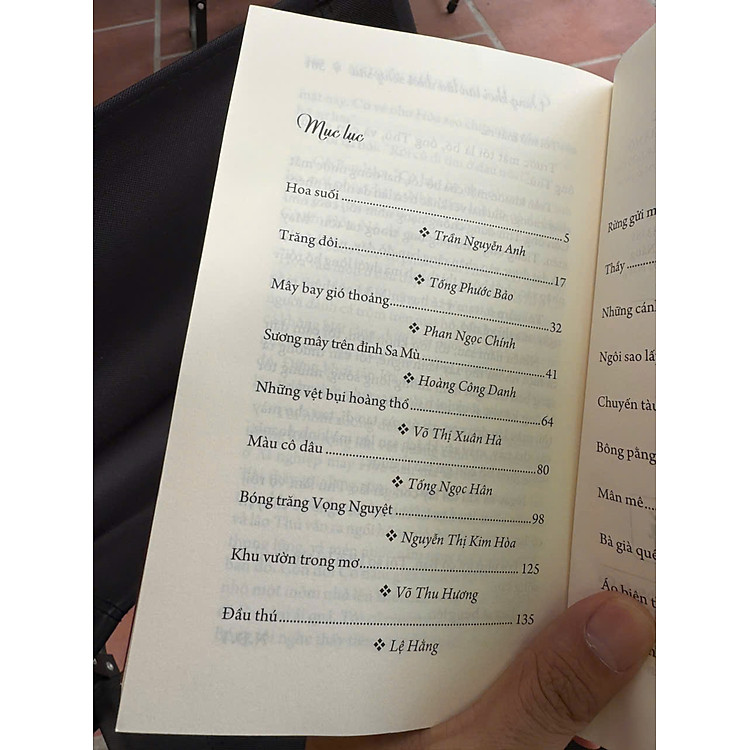 Mục lục
Hoa suối ........ 5
❖ Trần Nguyên Anh
Trăng đôi ........ 17
❖ Tống Phước Bảo
Mây bay gió thoảng ........ 32
❖ Phan Ngọc Chính
Sương mây trên đỉnh Sa Mù ........ 41
❖ Hoàng Công Danh
Những vệt bụi hoàng thổ ........ 64
❖ Võ Thị Xuân Hà
Màu cô dâu ........ 80
❖ Tống Ngọc Hân
Bóng trăng Vọng Nguyệt ........ 98
❖ Nguyễn Thị Kim Hòa
Khu vườn trong mơ ........ 125
❖ Võ Thu Hương
Đầu thú ........ 135
❖ Lệ Hằng
Rừng gửi
Thầy ........
Những
Ngôi sao
Chuyến
Bông
Mân mê ........
Bà già
Áo biên